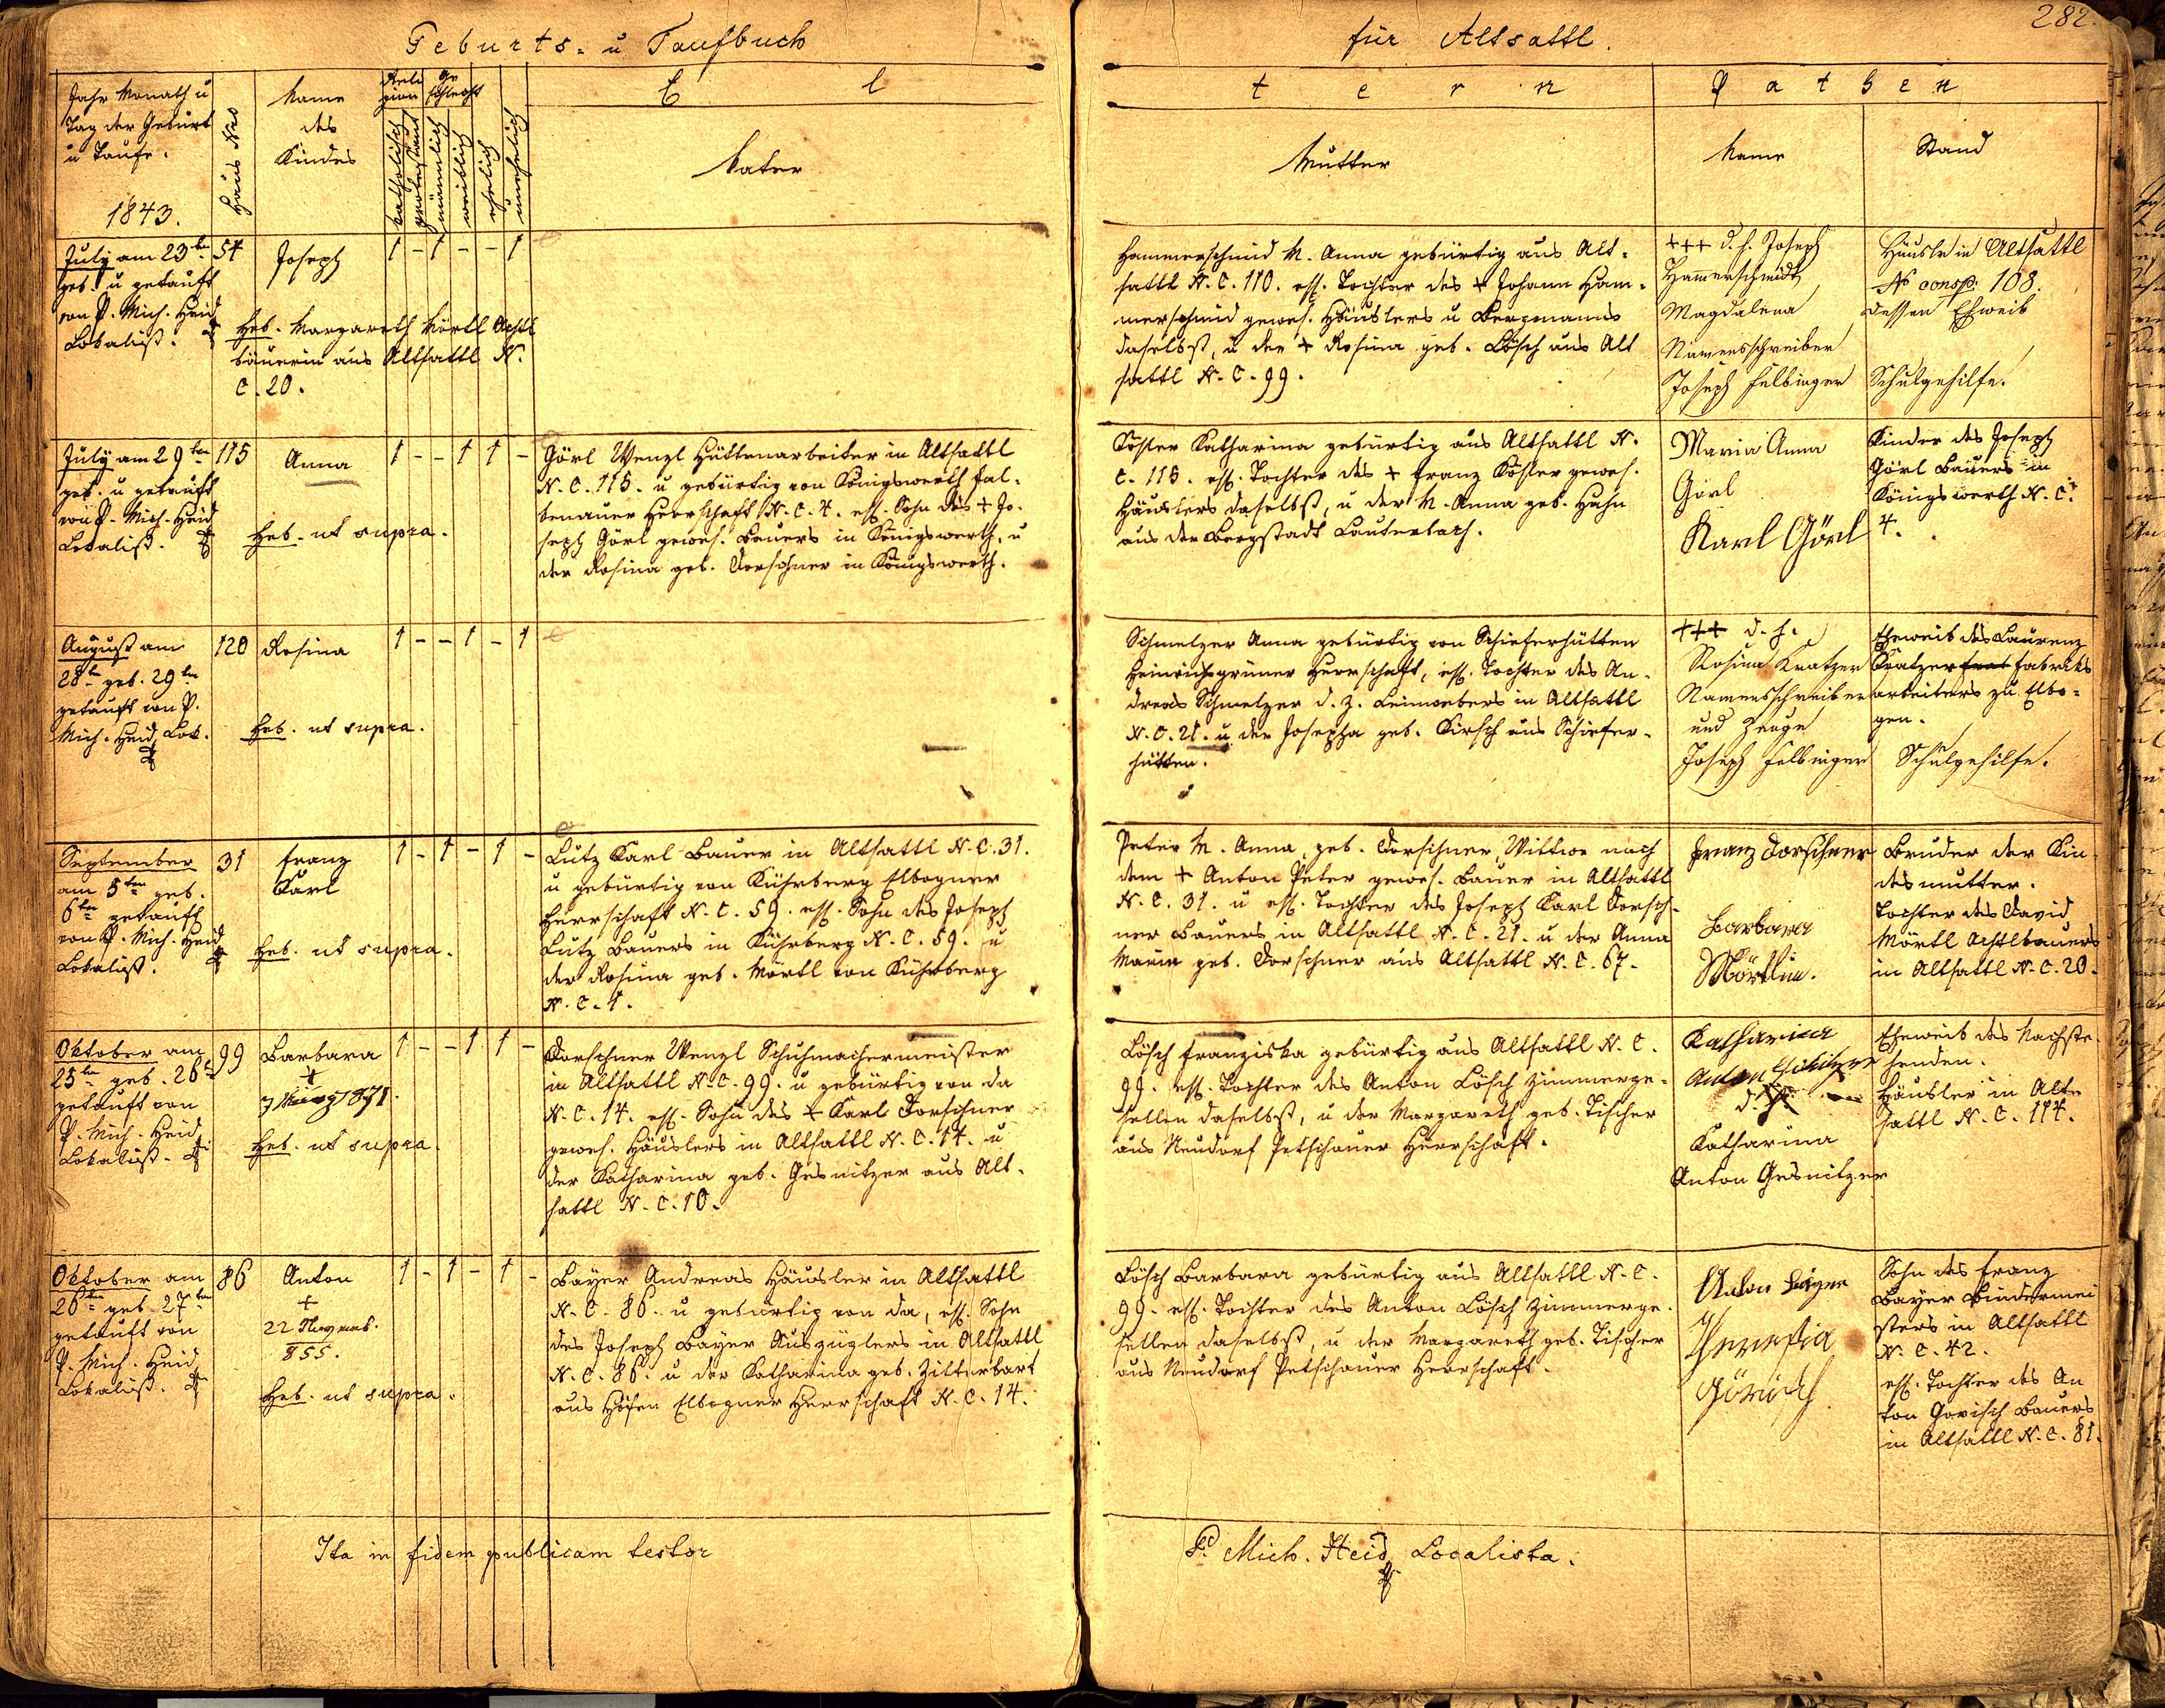 Geburts- u Taufbuch
für Altsattl.
282.
Jahr Monath u
Tag der Geburt
u Taufe.
1843.
Haus Nro
Name
des
Kindes
Reli
gion
Ge
schlecht
katholisch
protestant
männlich
weiblich
ehelich
unehelich
E l
t e r n
P a t h e n
Vater
Mutter
Name
Stand
July am 23ten
geb. u getauft
von P. Mich. Heid
Lokalist.
54
Joseph
1 - 1 - - 1
Heb. Margareth Mörtl Achtl
bäuerin aus Altsattl N.
C. 20.
Hammerschmid M. Anna gebürtig aus Alt-
sattl N. C. 110. ehl. Tochter des + Johann Ham-
merschmid gewes. Häuslers u Bergmanns
daselbst, u der + Rosina geb. Lösch aus Alt
sattl N. C. 99.
+++ d. h. Joseph
Hammerschmidt
Magdalena
Namensschreiber
Joseph Felbinger
Häusler in Altsattl
No consp. 108.
dessen Eheweib
Schulgehilfe.
July am 29ten
geb. u getauft
von P. Mich. Heid
Lokalist.
115
Anna
1 - - 1 1 -
Heb. ut supra.
Görl Wenzl Hüttenarbeiter in Altsattl
N. C. 115. u gebürtig von Königswerth Fal-
kenauer Herrschaft N. C. 4. ehl. Sohn des + Jo-
seph Görl gewes. Bauers in Königswerth, u
der Rosina geb. Dorschner in Königswerth.
Köster Katharina gebürtig aus Altsattl N.
C. 115. ehl. Tochter des + Franz Köster gewes.
Häuslers daselbst, u der M. Anna geb. Huhn
aus der Bergstadt Lauterbach.
Maria Anna
Görl
Karl Görl
Kinder des Joseph
Görl Bauers in
Königswerth N. C.
4.
August am
28ten geb. 29ten
getauft von P.
Mich. Heid Lok.
120
Rosina
1 - - 1 - 1
Heb. ut supra.
Schmelzer Anna gebürtig von Schieferhütten
Heinrichsgrüner Herrschaft, ehl. Tochter des An-
dreas Schmelzer d. Z. Leinwebers in Altsattl
N. C. 21. u der Josepha geb. Kirsch aus Schiefer-
hütten.
+++ d. h.
Rosina Kratzer
Namensschreiber
und Zeuge
Joseph Felbinger
Eheweib des Laurenz
Kratzer Fabriks
arbeiters zu Elbo-
gen.
Schulgehilfe.
September
am 5ten geb.
6ten getauft
von P. Mich. Heid
Lokalist.
31
Franz
Karl
1 - 1 - 1 -
Heb. ut supra.
Lutz Karl Bauer in Altsattl N. C. 31.
u gebürtig von Kührberg Elbogner
Herrschaft N. C. 59. ehl. Sohn des Joseph
Lutz Bauers in Kührberg N. C. 59. u
der Rosina geb. Mörtl von Kührberg
N. C. 1.
Peter M. Anna, geb. Dorschner, Wittwe nach
dem + Anton Peter gewes. Bauer in Altsattl
N. C. 31. u ehl. Tochter des Joseph Karl Dorsch-
ner Bauers in Altsattl N. C. 21. u der Anna
Maria geb. Dorschner aus Altsattl N. C. 67.
Franz Dorschner
Barbara
Mörtlin.
Bruder der Kin-
desmutter.
Tochter des David
Mörtl Achtlbauers
in Altsattl N. C. 20.
Oktober am
25ten geb. 26t
getauft von
P. Mich. Heid
Lokalist.
99
Barbara
+
7 März 1871.
1 - - 1 1 -
Heb. ut supra.
Dorschner Wenzl Schuhmachermeister
in Altsattl N. C. 99. u gebürtig von da
N. C. 14. ehl. Sohn des + Karl Dorschner
gewes. Häuslers in Altsattl N. C. 14. u
der Katharina geb. Gesnitzer aus Alt-
sattl N. C. 10.
Lösch Franziska gebürtig aus Altsattl N. C.
99. ehl. Tochter des Anton Lösch Zimmerge-
sellen daselbst, u der Margareth geb. Tischer
aus Neudorf Petschauer Herrschaft.
Katharina
Anton
d. h.
Katharina
Anton Gesnitzer
Eheweib des Nachste-
henden.
Häusler in Alt-
sattl N. C. 114.
Oktober am
26ten geb. 27ten
getauft von
P. Mich. Heid
Lokalist.
86
Anton
+
22
855.
1 - 1 - 1 -
Heb. ut supra.
Bayer Andreas Häusler in Altsattl
N. C. 86. u gebürtig von da, ehl. Sohn
des Joseph Bayer Auszüglers in Altsattl
N. C. 86. u der Katharina geb. Zitterbart
aus Höfen Elbogner Herrschaft N. C. 14.
Lösch Barbara gebürtig aus Altsattl N. C.
99. ehl. Tochter des Anton Lösch Zimmerge-
sellen daselbst, u der Margareth geb. Tischer
aus Neudorf Petschauer Herrschaft.
Anton Bayer
Theresia
Görisch
Sohn des Franz
Bayer Bindermei
sters in Altsattl
N. C. 42.
ehl. Tochter des An
ton Gorisch Bauers
in Altsattl N. C. 81.
Ita in fidem publicam testor
P. Mich. Heid Localista.